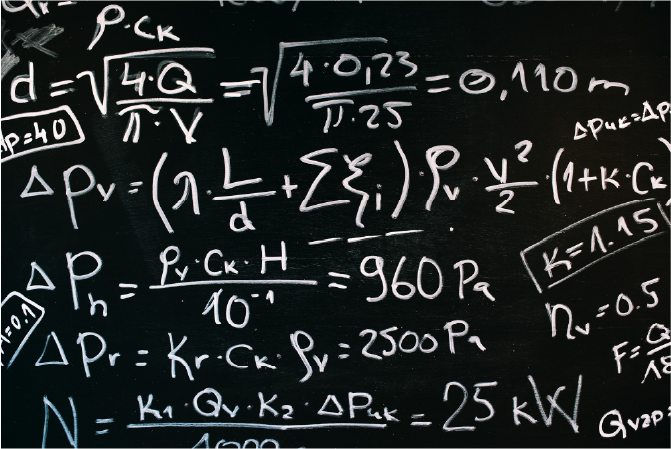 ρ·Cк
d = √(4·Q / π·V) = √(4·0,23 / π·25) = 0,110 m
Δp=40
ΔPик=ΔP
ΔPv = (λ·L/d + Σξi)·ρv·v²/2·(1+K·Cк)
K=1.15
ΔPh = ρv·Cк·H / 10⁻¹ = 960 Pa
ηv=0.5
=0.1
ΔPr = Kr·Cк·ρv = 2500 Pa
F=Q/18
N = K1·Qv·K2·ΔPик / 1000 = 25 kW
Qvzp=